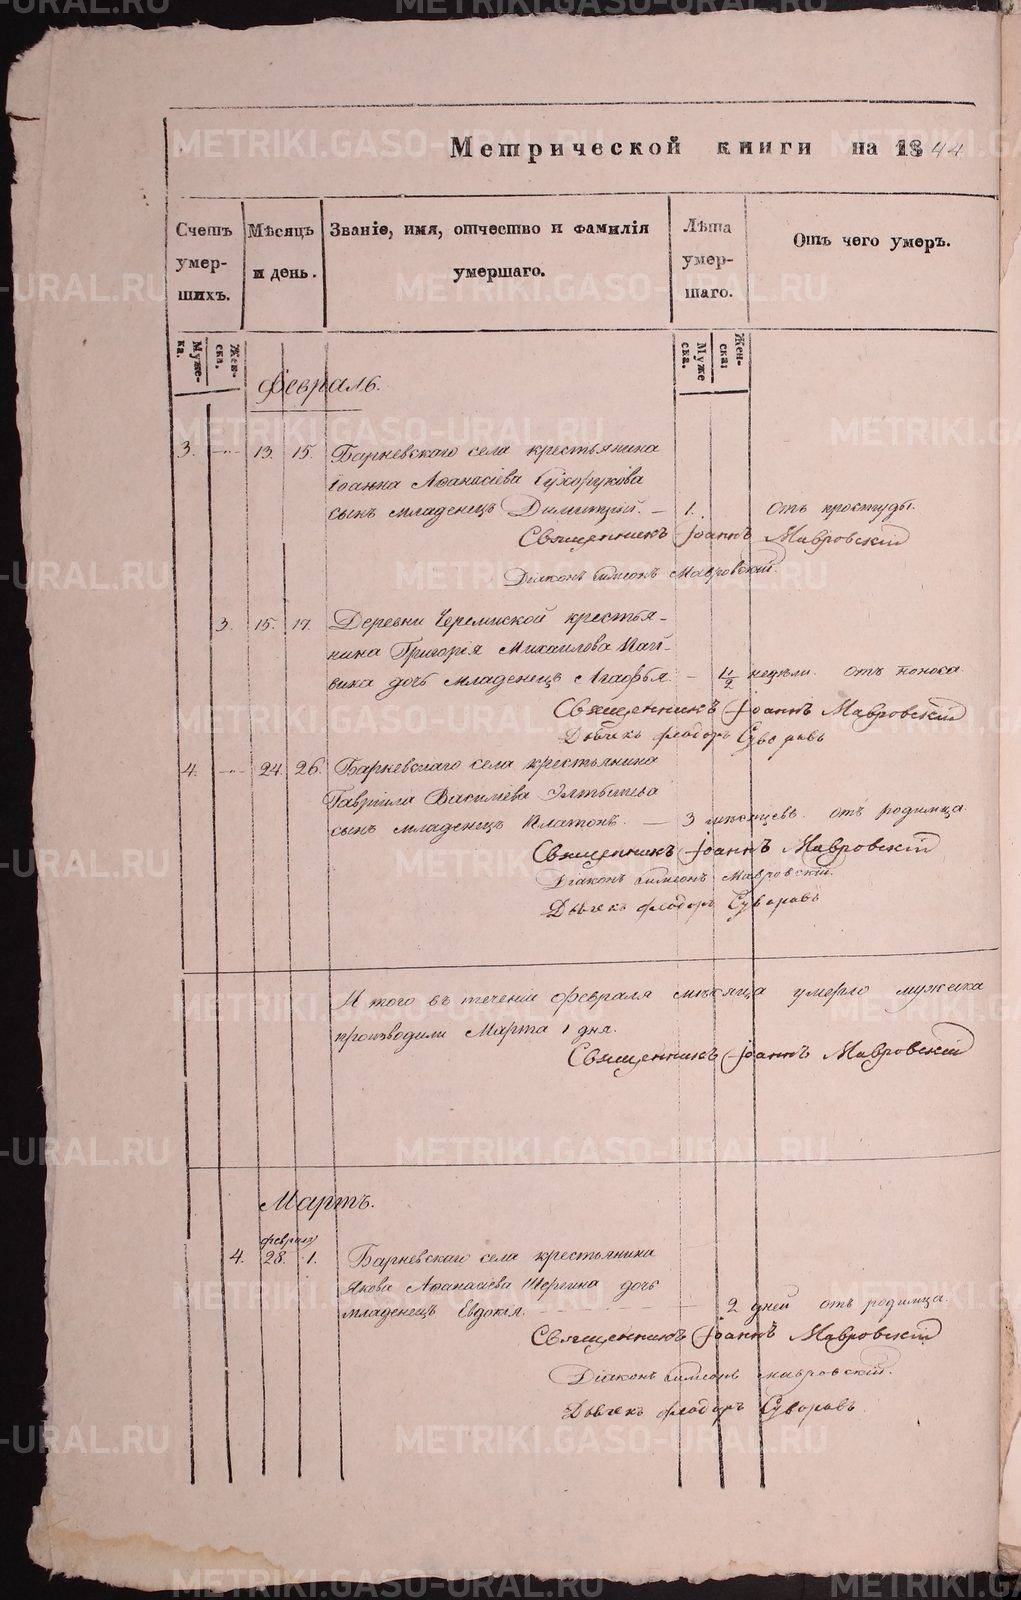 Метрической книги на 1844
Счетъ умер- шихъ.
Мѣсяцъ и день.
Званіе, имя, отчество и фамилія умершаго.
Лѣта умер- шаго.
Отъ чего умеръ.
Муже- ка.
Жен- ска.
Муже ска.
Жен- ска:
Февраль.
3. 13. 15. Барневскаго села крестьянина
Іоанна Аѳанасіева Сухорукова
сынъ младенецъ Димитрій. — 1. Отъ простуды.
Священникъ Іоаннъ Мавровскій
Діаконъ Симеонъ Мавровскій.
3. 15. 17. Деревни Черемиской крестья-
нина Григорія Михаилова
дочь младенецъ Агафья — недѣли. отъ поноса.
Священникъ Іоаннъ Мавровскій
Дьячекъ Феодоръ Суворовъ
4. 24. 26. Барневскаго села крестьянина
Гавріила Василіева
сынъ младенецъ Платонъ. — 3 мѣсяцевъ. отъ родимца.
Священникъ Іоаннъ Мавровскій
Діаконъ Симеонъ Мавровскій.
Дьячекъ Феодоръ Суворовъ
И того въ теченіи февраля мѣсяца умерло мужеска
производили Марта 1 дня.
Священникъ Іоаннъ Мавровскій
Мартъ.
февраля
4. 28. 1. Барневскаго села крестьянина
Якова Аѳанасіева Шергина дочь
младенецъ Евдокія. — 2 дней отъ родимца.
Священникъ Іоаннъ Мавровскій
Діаконъ Симеонъ Мавровскій.
Дьячекъ Феодоръ Суворовъ.
METRIKI.GASO-URAL.RU